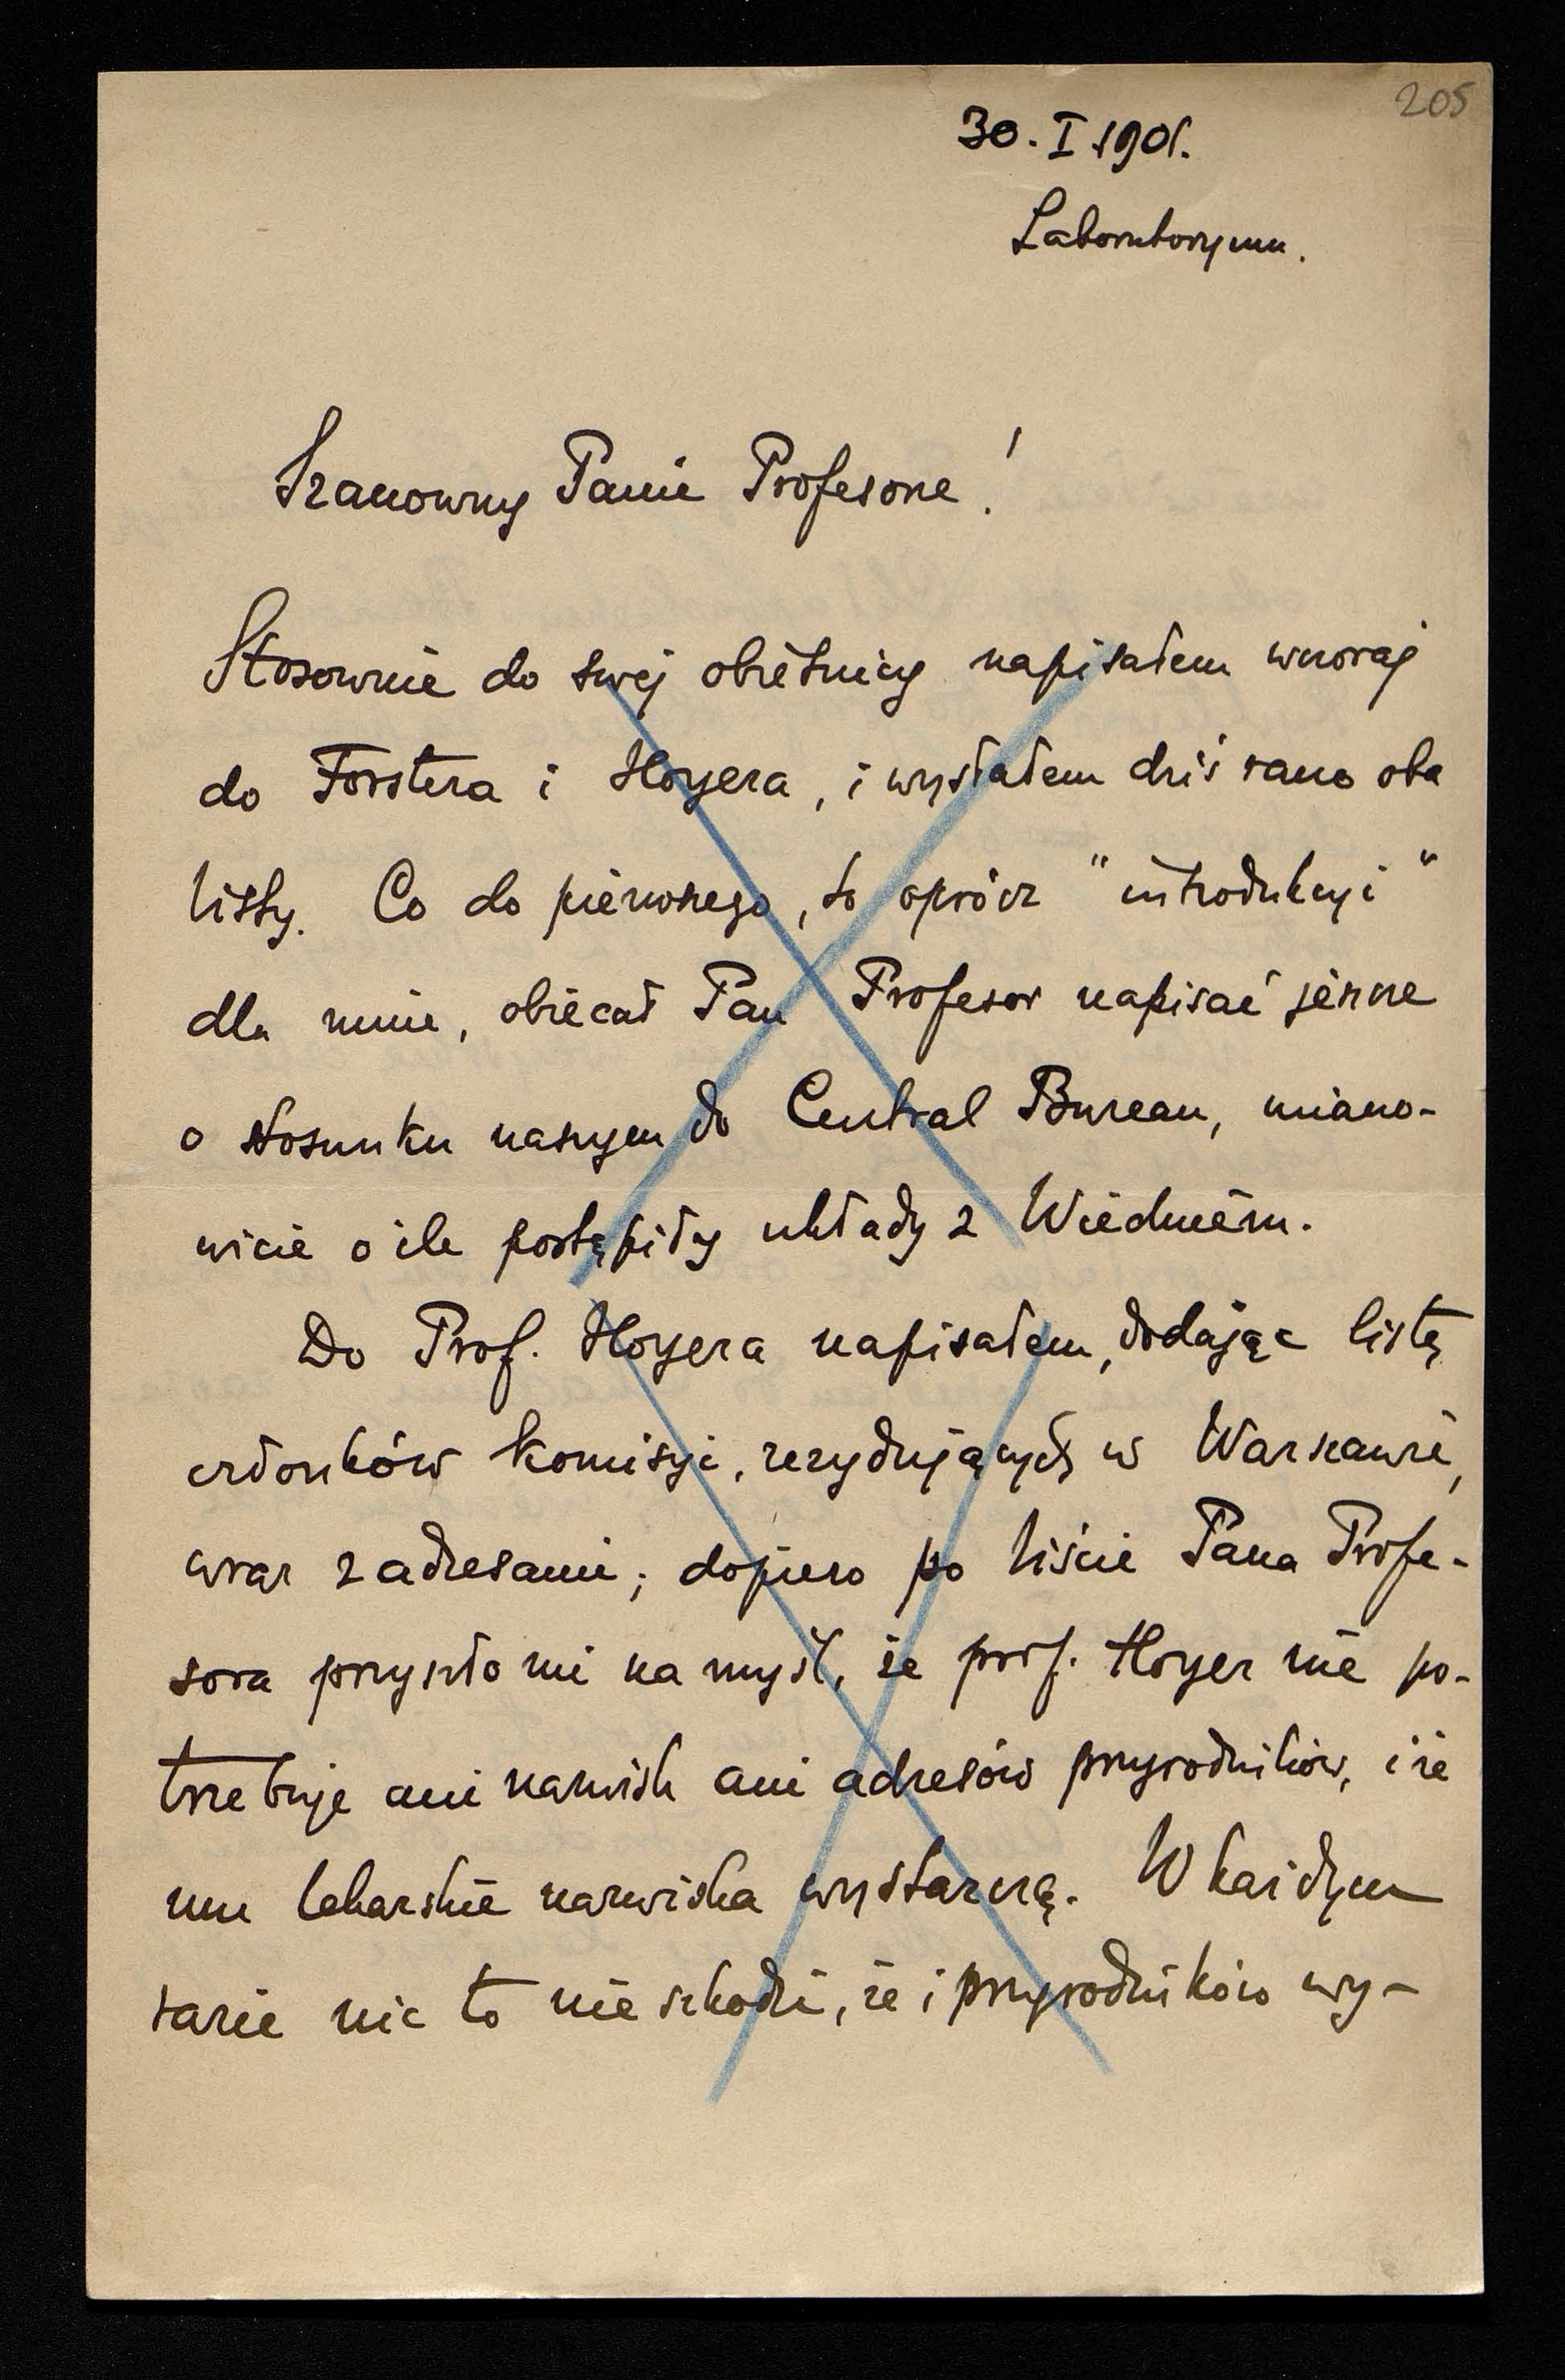 205
30. I 1901.
Laboratoryum.
Szanowny Panie Profesorze!
Stosownie do swéj obietnicy napisałem wczoraj
do Forstera i Hoyera, i wysłałem dziś rano oba
listy. Co do pierwszego, to oprócz "introdukcyi"
dla mnie, obiecał Pan Profesor napisać jeszcze
o stosunku naszym do Central Bureau, miano-
wicie o ile postąpiły układy z Wiedniem.
Do Prof. Hoyera napisałem, dodając listę
członków Komisyi, rezydujących w Warszawie,
wraz z adresami; dopiero po liście Pana Profe-
sora przyszło mi na myśl, że prof. Hoyer nie po-
trzebuje ani nazwisk ani adresów przyrodników, i że
mu lekarskie nazwiska wystarczą. W każdym
razie nic to nie szkodzi, że i przyrodników wy-